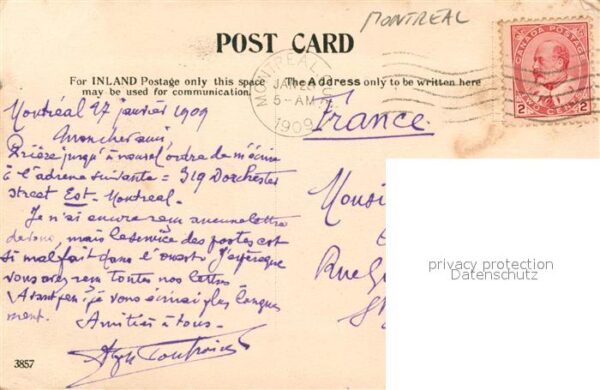 MONTREAL
POST CARD
For INLAND Postage only this space
may be used for communication.
The Address only to be written here
MONTREAL
JAN 28
5-AM
1909
CANADA POSTAGE
2 CENTS 2
Montréal 27 janvier 1909
Mon cher ami
Prière jusqu'à nouvel ordre de m'écrire
à l'adresse suivante = 319 Dorchester
street Est - Montreal.
Je n'ai encore reçu aucune lettre
de vous, mais le service des postes est
si mal fait dans l'ouest. J'espère que
vous avez reçu toutes nos lettres
Avant peu, je vous écrirai plus longue
ment.
Amitiés à tous.
France.
Monsi
Rue
privacy protection
Datenschutz
3857